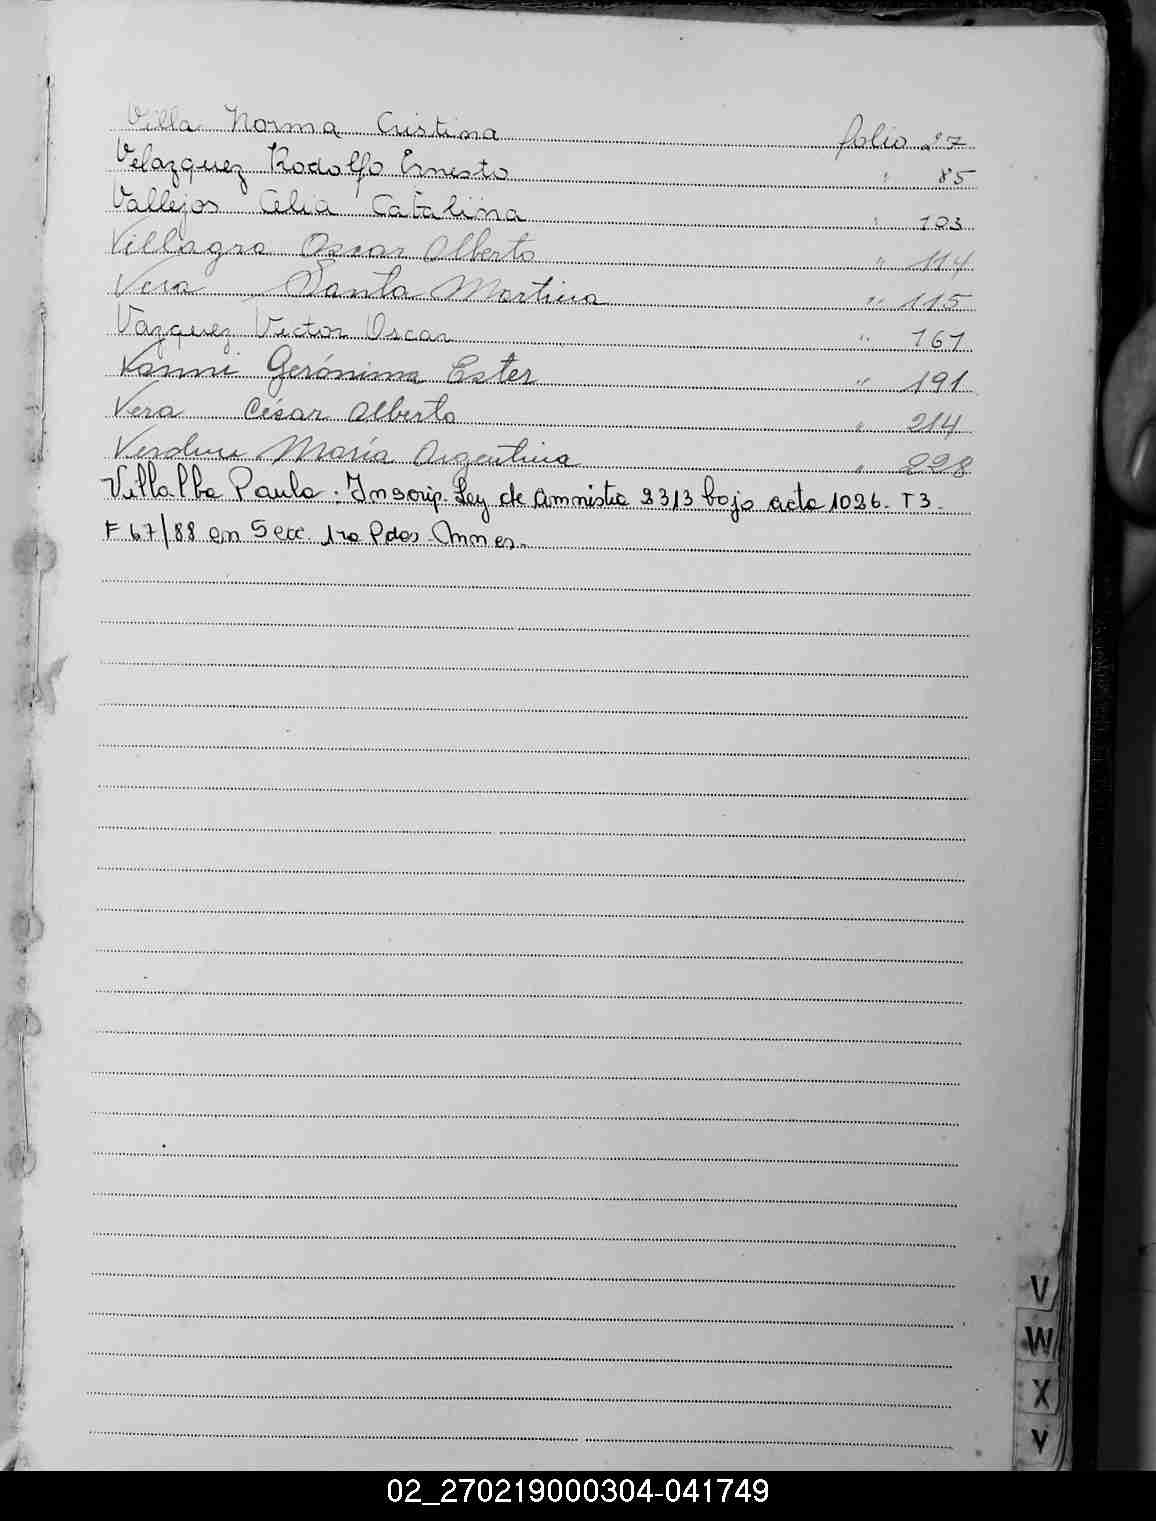 Villa Norma Cristina folio 27
Velazquez Rodolfo Ernesto " 85
Vallejos Celia Catalina " 103
Villagra Oscar Alberto " 114
Vera Santa Martina " 115
Vazquez Victor Oscar " 161
Vanni Gerónima Ester " 191
Vera César Alberto " 214
María Argentina " 228
Villalba Paula. Inscrip. Ley de Amnistia 2313 bajo acta 1026. T3.
F 67/88 en Secc. 1ra Pdas.
V
W
X
Y
02_270219000304-041749